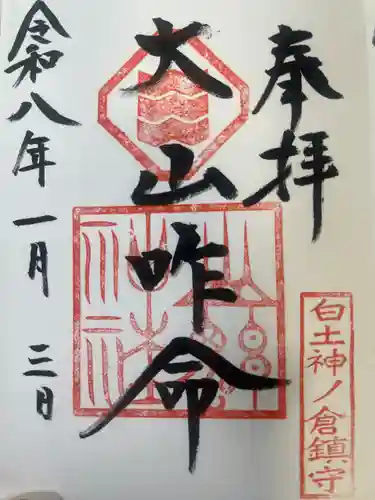 奉拝
大山咋命
令和八年一月三日
白土神ノ倉鎮守